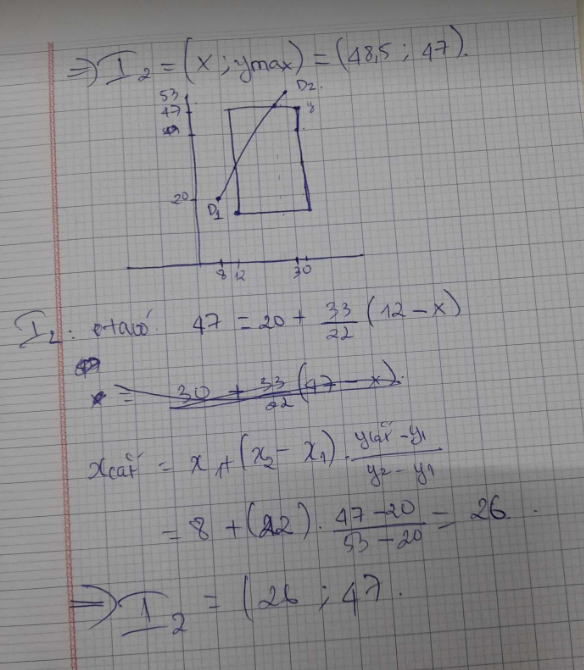 ⇒ I₂ = (x ; ymax) = (48,5 ; 47).
53
D2
47
8
20
D1
8 12 30
I₂ : có 47 = 20 + 33/22 (12 - x)
x = 30 + 33/22 (47 - x).
xcắt = x₁ + (x₂ - x₁) . (ycắt - y₁)/(y₂ - y₁)
= 8 + (22) . (47 - 20)/(53 - 20) = 26 .
⇒ I₂ = (26 ; 47.